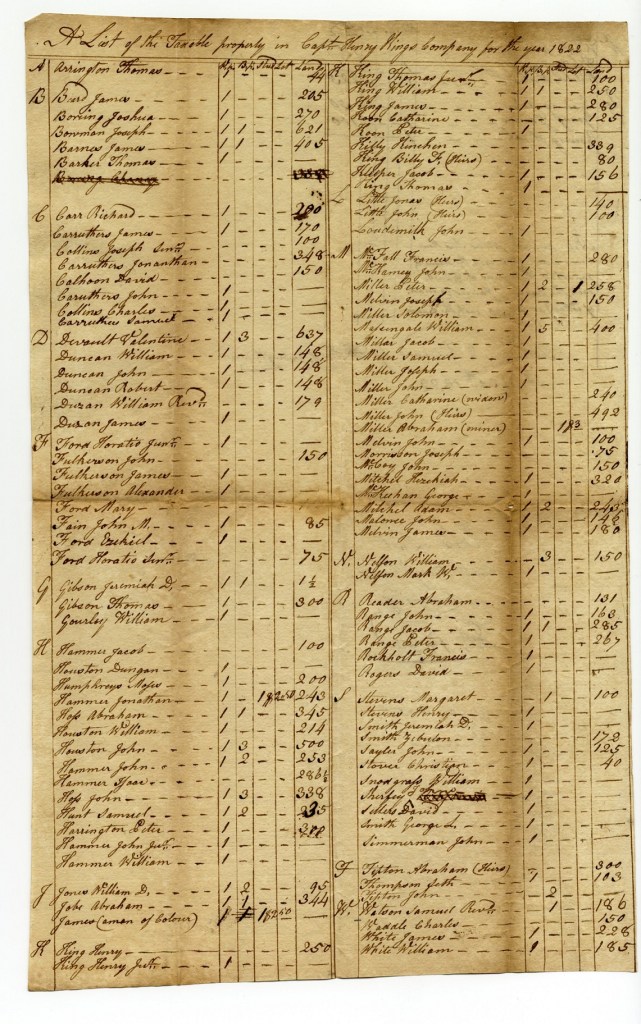 A List of the Taxable property in Capt. Henry Kings Company for the year 1822
A Arrington Thomas 1 44
B Burd James 1 205
Bowing Joshua 1 270
Bowman Joseph 1 1 621
Barnes James 1 1 405
Barker Thomas 1
C Carr Richard 200
Carruthers James 1 170
Collins Joseph Senr. 100
Carruthers Jonanthan 348
Calhoon David 150
Caruthers John 1
Collins Charles 1
Carruthes Samuel 1
D Devault Valentine 1 3 637
Duncan William 1 148
Duncan John 1 148
Duncan Robert 1 148
Duzan William 179
Duzan James 1
F Ford Horatio Junr. 1
Fulkerson John 150
Fulkerson James 1
Fulkerson Alexander 1
Ford Mary
Fain John M. 1 85
Ford Ezekiel 1
Ford Horatio Senr. 75
G Gibson Jeremiah D. 1 1 1½
Gibson Thomas 1 300
Gourley William 1
H Hammer Jacob 100
Houston Dungan 1
Humphreys Moses 1 200
Hammer Jonathan 1 243
Hoss Abraham 1 1 345
Houston William 1 214
Houston John 1 3 500
Hammer John 1 2 253
Hammer Isaac 286½
Hoss John 1 3 338
Hunt Samuel 1 2
Harrington Peter 1
Hammer John Jur. 1
Hammer William 1
J Jones William D. 1 2 95
Jobe Abraham 1 1 344
James (a man of Colour) 1
K King Henry 250
King Henry Jur. 1
K King Thomas 1 100
King William 1 1 250
King James 1 280
Koon Catharine 125
Koon Peter 1
Killy Kinchen 339
King Billy F. (Heirs) 80
Keeper Jacob 1 156
King Thomas 1
L Little Jonas (Heirs) 140
Little John (Heirs) 100
Loudemilk John 1
M McFall Francis 1 280
McRamey John 1
Miller Peter 1 2 1 258
Melvin Joseph 1 150
Miller Solomon 1
Mesengale William 1 5 400
Millar Jacob 1
Miller Samuel 1
Miller Joseph 1
Miller John 1
Miller Catharine (widow) 240
Miller John (Heirs) 492
Miller Abraham (miner)
Melvin John 1 100
Morrisson Joseph 75
McCoy John 1 150
Mitchel Hezekiah 1 320
McKeehan George 1
Mitchel Adam 1 2
Malonee John 1 148
Melvin James 1 180
N. Nelson William 3 150
Nelson Mark W. 1
R Reader Abraham 131
Range John 1 163
Range Jacob 1 1 285
Range Peter 1 267
Rockholt Francis 1
Rogers David 1
S Stevens Margaret 1 100
Stevens Henry 1
Smith Jeremiah D. 1
Smith Zibulon 172
Sayler John 1 125
Stover Christian 1 40
Snodgrass William 1 1
Sellers David 1
Smith George L. 1
Simmerman John 1
T Tipton Abraham (Heirs) 300
Thompson Seth 1 103
Tipton John 2
W. Watson Samuel 1 186
Waddle Charles 150
White James 1 228
White William 1 185